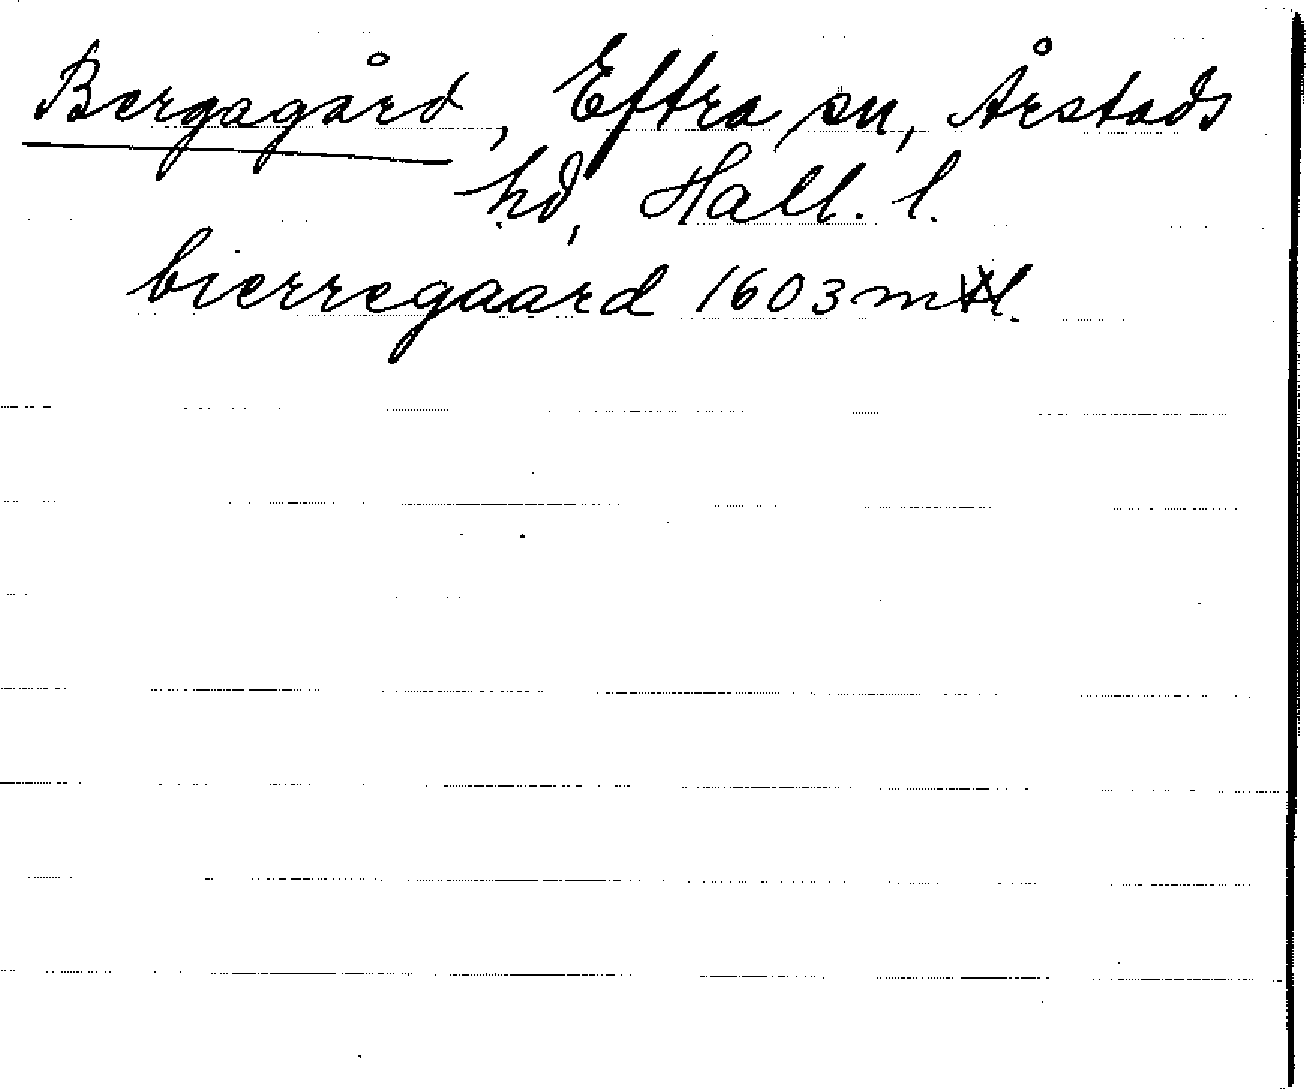 Bergagård, Eftra sn, Årstads
hd, Hall. l.
bierregaard 1603